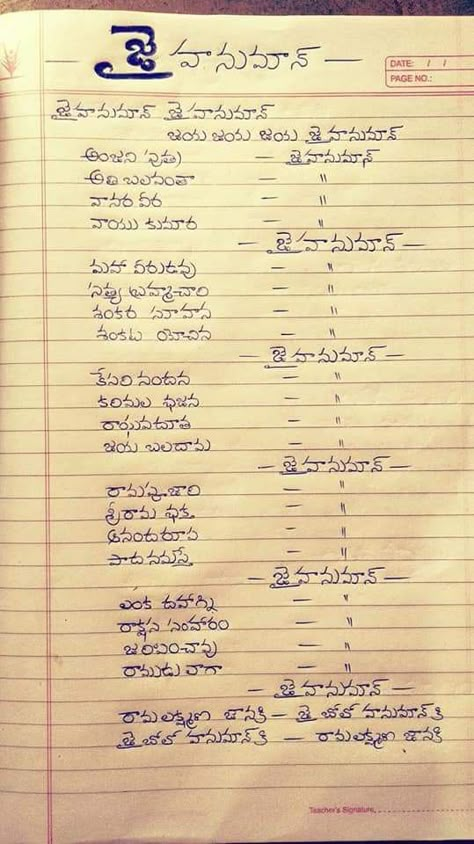 — జై హనుమాన్ —
DATE: / /
PAGE NO.:
జైహనుమాన్ జైహనుమాన్
జయ జయ జయ జైహనుమాన్
అంజని పుత్ర — జైహనుమాన్
అతి బలవంతా — "
వానర వీర — "
వాయు కుమార — "
— జైహనుమాన్ —
మహా వీరుడవు — "
సత్య బ్రహ్మాచారి — "
శంకర — "
శంకట — "
— జైహనుమాన్ —
కేసరి నందన — "
కరిమల భజన — "
రాఘవదూత — "
జయ బలదామ — "
— జైహనుమాన్ —
రామపూజారి — "
శ్రీరామ భక్త — "
ఏనందరూప — "
పాద నమస్తే — "
— జైహనుమాన్ —
లంక దహాగ్ని — "
రాక్షస సంహారం — "
జరిపించావు — "
రాముడు — "
— జైహనుమాన్ —
రామలక్ష్మణ జానకి — జై బోలో హనుమాన్ కి
జై బోలో హనుమాన్ కి — రామలక్ష్మణ జానకి
Teacher's Signature